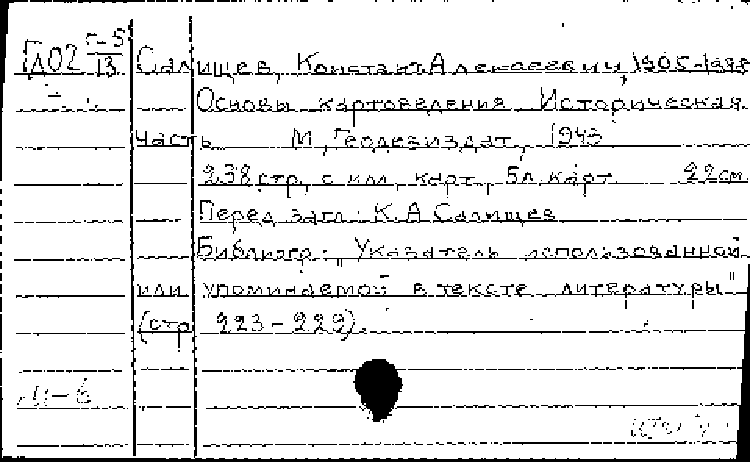 ГД02 Г-5/13 Салищев, Констант. Алексеевич, 1905-1988
Основы картоведения Историческая
часть М, Геодезиздат, 1943
238 стр, с илл, карт, 5л. карт 22см
Перед загл: К. А Салищев
Библиогр: "Указатель использованной
или упоминаемой в тексте литературы"
(стр 223-229).
М-6